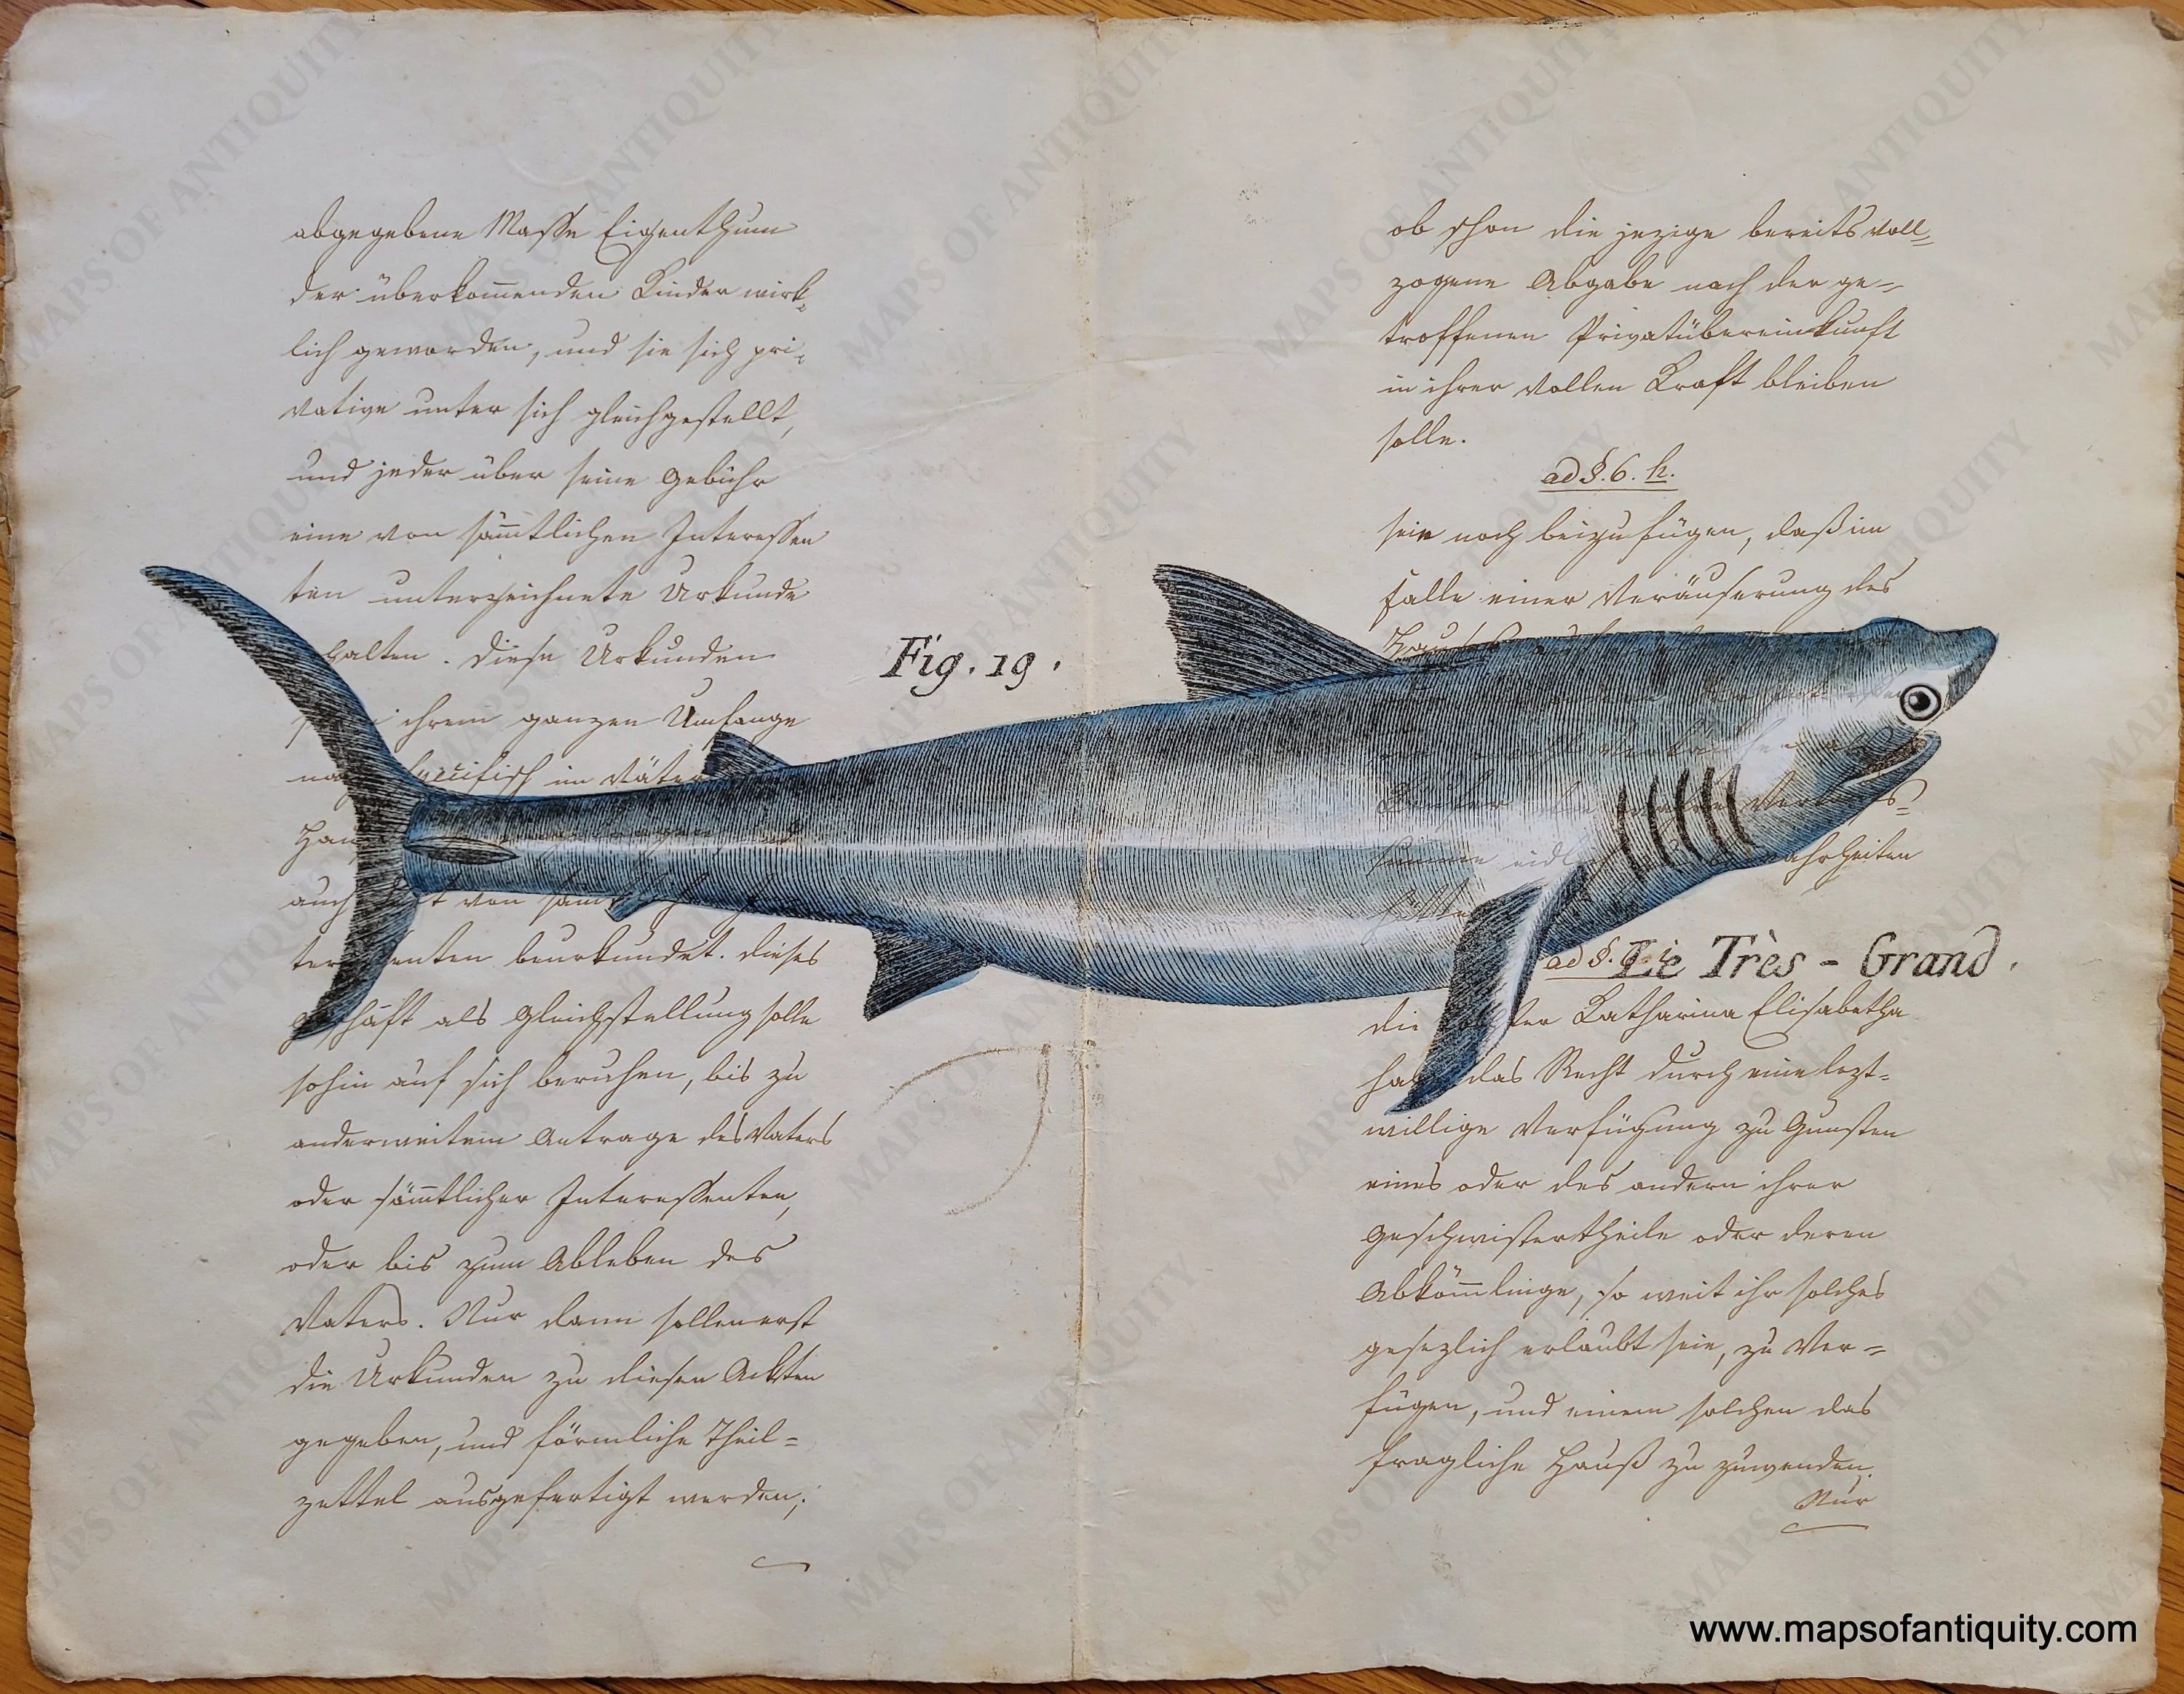 abgegebene Masse Eigenthum
der überkommenden Kinder wirk-
lich geworden, und sie sich pri-
vative unter sich gleichgestellt,
und jeder über seine Gebühr
eine von sämtlichen Interessen
ten unterzeichnete Urkunde
halten. Diese Urkunden
ihrem ganzen Umfange
specifisch im Väter
auch von
beurkundet. Dieses
Geschäft als Gleichstellung solle
sohin auf sich beruhen, bis zu
anderweitem Antrage des Vaters
oder sämmtlicher Interessenten,
oder bis zum Ableben des
Vaters. Nur dann sollen erst
die Urkunden zu diesen Ackten
gegeben, und förmliche Theil=
zettel ausgefertigt werden;
Fig. 19.
ob schon die jezige bereits voll=
zogene Abgabe nach der ge=
troffenen Privatübereinkunft
in ihrer vollen Kraft bleiben
solle.
ad §. 6. h.
seie noch beizufügen, daß im
Falle einer Veräuserung des
ad §. 6. i.
Le Très - Grand.
die Tochter Katharina Elisabetha
habe das Recht durch eine lezt=
willige Verfügung zu Gunsten
eines oder des andern ihrer
Geschwistertheile oder deren
Abkömlinge, so weit ihr solches
gesezlich erlaubt seie, zu ver=
fügen, und einem solchen das
fragliche Hauß zu zuwenden.
Nur
www.mapsofantiquity.com
MAPS OF ANTIQUITY